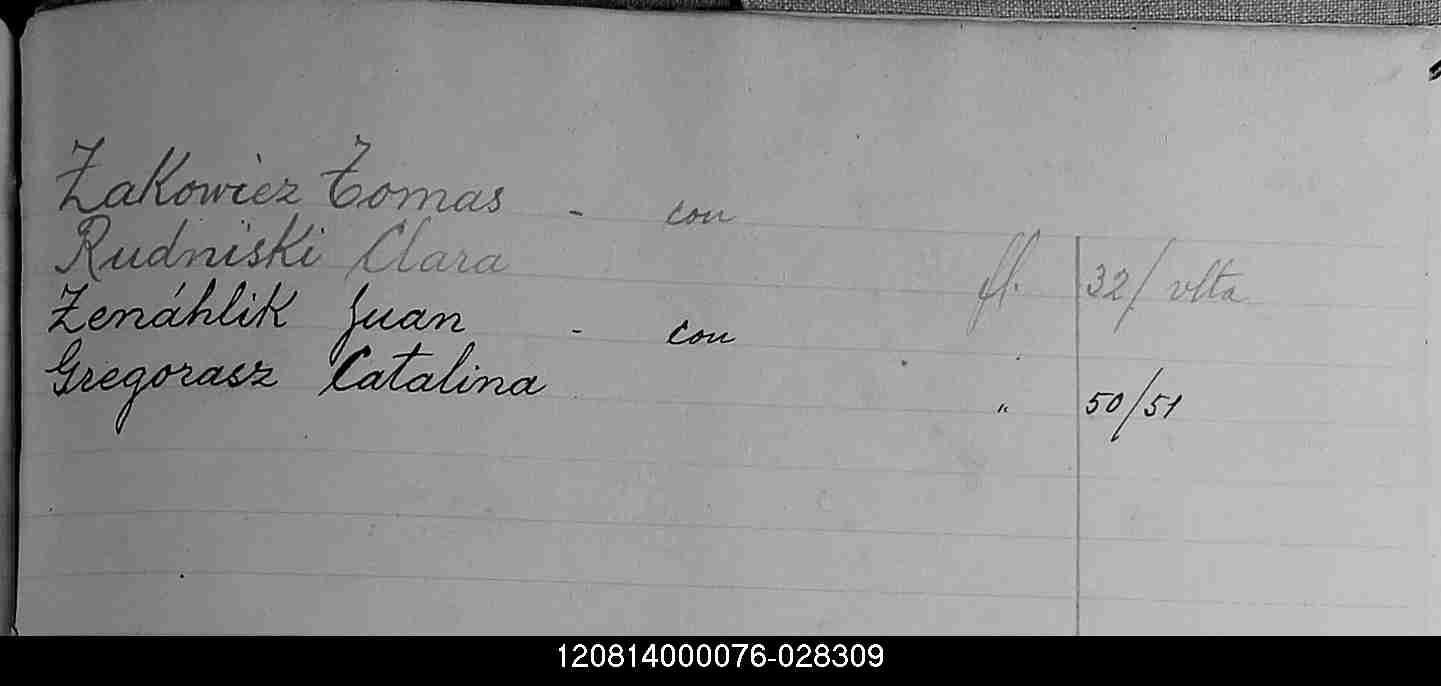 Zakowiez Tomas - con
Rudniski Clara fl. 32/vlta
Zenáhlik Juan - con
Gregorasz Catalina " 50/51
120814000076-028309